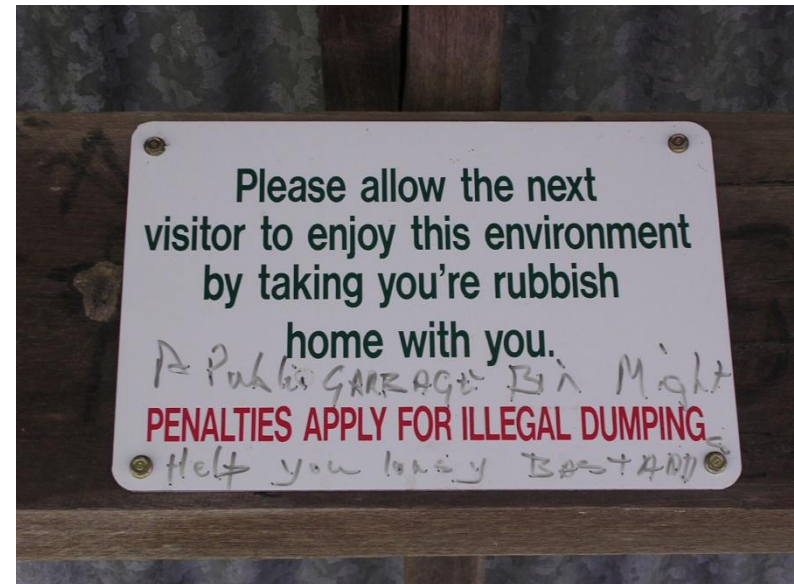 Please allow the next
visitor to enjoy this environment
by taking you're rubbish
home with you.
A Public GARBAGE Bin Might
PENALTIES APPLY FOR ILLEGAL DUMPING
Help you lousy BASTARDS